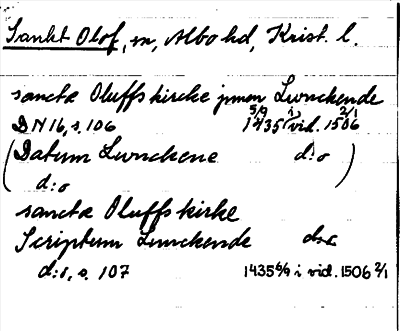 Sankt Olof, sn, Albo hd, Krist. l.
sanctæ Oluffs kircke jnnen Lunckende
DN 16, s. 106 1435 5/9 i vid. 1506 2/1
(Datum Lunckene d:o )
d:o
sanctæ Oluffs kirke
Scriptum Lunckende
d:o, s. 107 1435 6/9 i vid. 1506 2/1